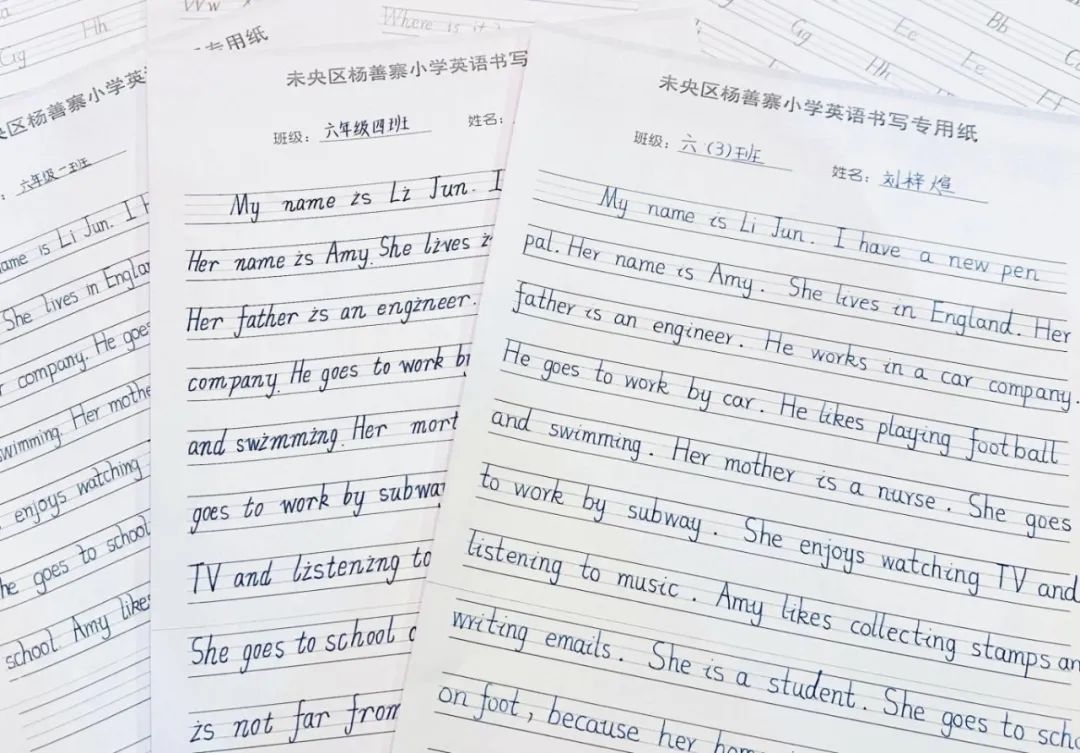 Gg
Hh
Ww
Where is it?
Bb
Ee
Gg
Ee
Hh
Ff
区杨善寨小学英
六年级二班
name is Li Jun. I
She lives in
company. He goes
swimming. Her
enjoys watching
he goes to school
school. Amy likes
专用纸
未央区杨善寨小学英语书写
班级: 六年级四班 姓名:
My name is Li Jun. I
Her name is Amy. She lives
Her father is an engineer.
company. He goes to work
and swimming. Her mort
goes to work by
TV and listening to
She goes to school
is not far from
未央区杨善寨小学英语书写专用纸
班级: 六(3)班 姓名: 刘梓煊
My name is Li Jun. I have a new pen
pal. Her name is Amy. She lives in England. Her
father is an engineer. He works in a car company.
He goes to work by car. He likes playing football
and swimming. Her mother is a nurse. She goes
to work by subway. She enjoys watching TV and
listening to music. Amy likes collecting stamps an
writing emails. She is a student. She goes to sch
on foot, because her hom